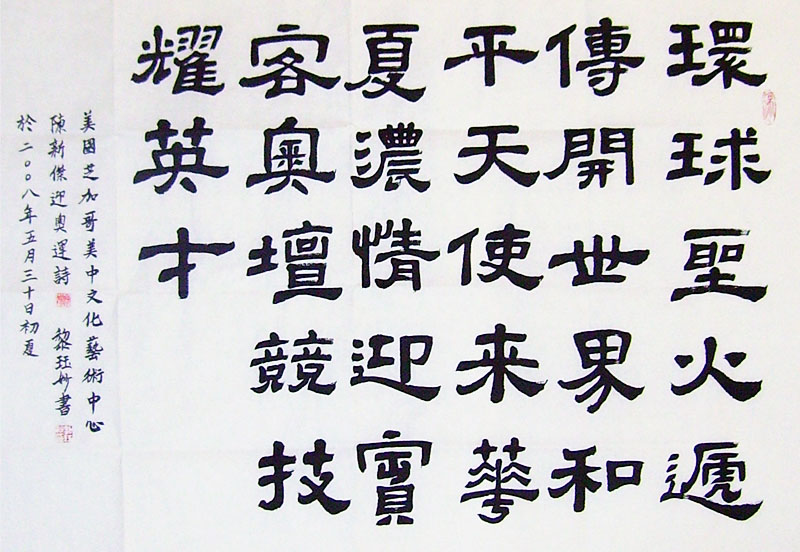 環球聖火遞
傳開世界和
平天使来華
夏濃情迎賓
客奧壇競技
耀英才
美國芝加哥美中文化藝術中心
陳新傑迎奧運詩 黎珏妙書
於二〇〇八年五月三十日初夏